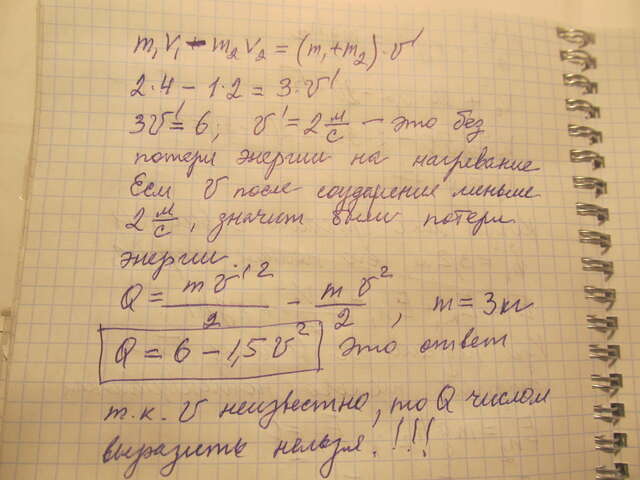 m₁v₁ - m₂v₂ = (m₁+m₂)·v'
2·4 - 1·2 = 3·v'
3v' = 6; v' = 2 м/с - это без
потери энергии на нагревание
Есл v после соударение меньше
2 м/с, значит были потери
энергии.
Q = mv'²/2 - mv²/2; m = 3кг
Q = 6 - 1,5v² это ответ
т.к. v неизвестно, то Q числом
выразить нельзя.!!!